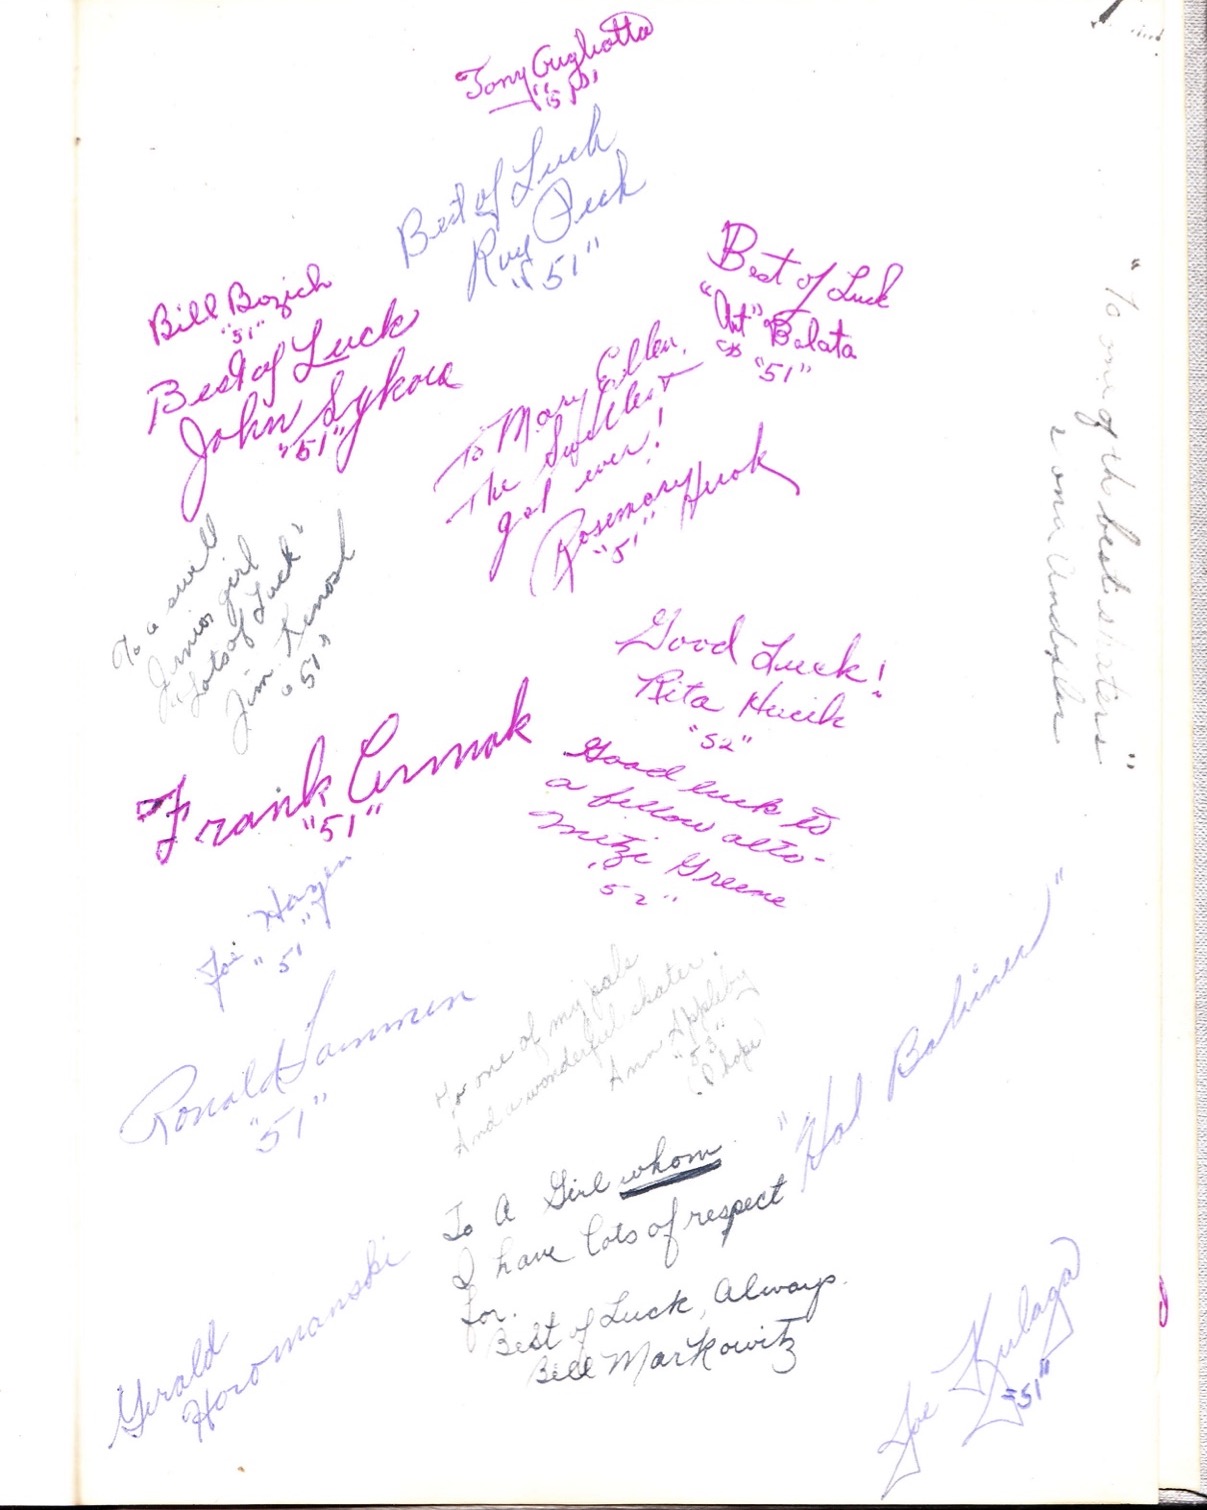 Tony Gugliotta
"51"
Best of Luck
Ray Peck
"51"
Bill Bozich
"51"
Best of Luck
John Sykora
"51"
Best of Luck
"Art" Balata
"51"
To Mary Ellen,
The Swellest
gal ever!
Rosemary
"51"
"To one of th best skaters"
To a swell
Junior girl
"Lots of Luck"
Jim
"51"
Good Luck!
Rita
"52"
Frank Cermak
"51"
Good luck to
a fellow alto-
Mitzi Greene
"52"
Joe Hayen
"51"
Ronald Lammen
"51"
To one of my pals
And a wonderful skater.
Ann Appleby
"53"
(I hope
"Hal "
To A Girl whom
I have lots of respect
for.
Best of Luck, Always.
Bill Markowitz
Gerald
Horomanski
Joe Kulaga
"51"